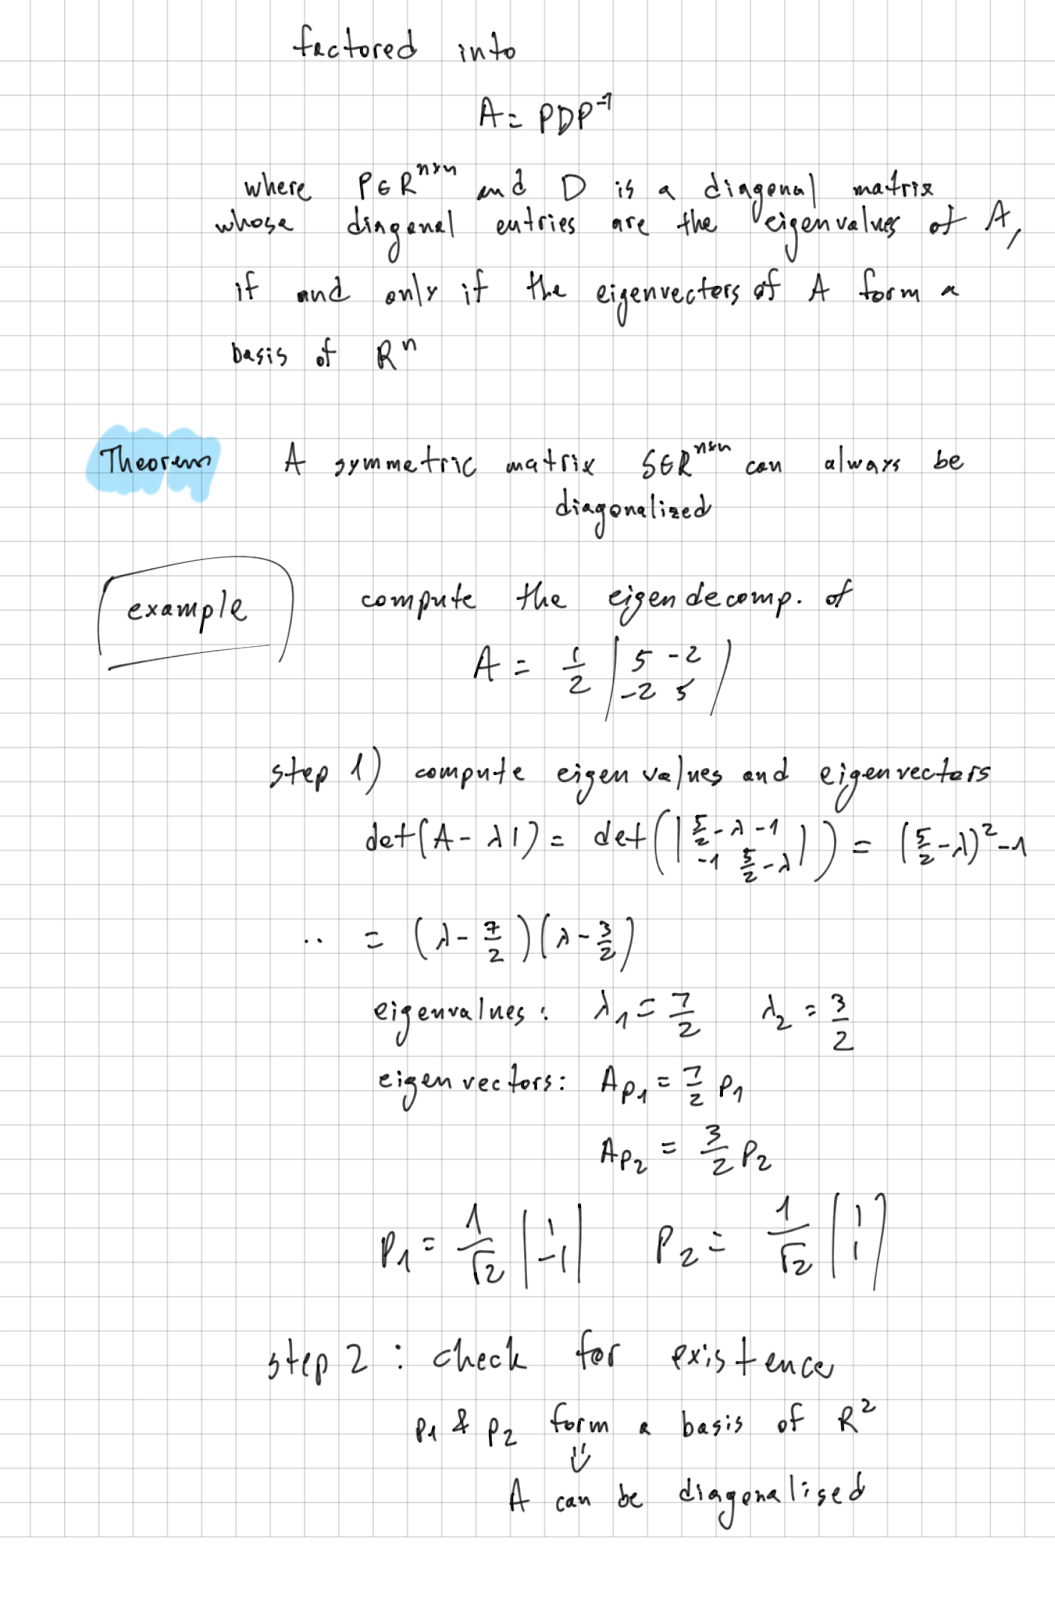 factored into
A = PDP⁻¹
where P∈Rⁿˣⁿ and D is a diagonal matrix
whose diagonal entries are the eigenvalues of A,
if and only if the eigenvectors of A form a
basis of Rⁿ
Theorem A symmetric matrix S∈Rⁿˣⁿ can always be
diagonalized
example compute the eigendecomp. of
A = 1/2 | 5 -2 |
| -2 5 |
step 1) compute eigenvalues and eigenvectors
det(A - λI) = det(| 5/2-λ -1 |) = (5/2-λ)²-1
| -1 5/2-λ |
.. = (λ - 7/2)(λ - 3/2)
eigenvalues: λ₁ = 7/2 λ₂ = 3/2
eigenvectors: Ap₁ = 7/2 p₁
Ap₂ = 3/2 p₂
p₁ = 1/√2 | 1 | p₂ = 1/√2 | 1 |
| -1 | | 1 |
step 2 : check for existence
p₁ & p₂ form a basis of R²
⇓
A can be diagonalised